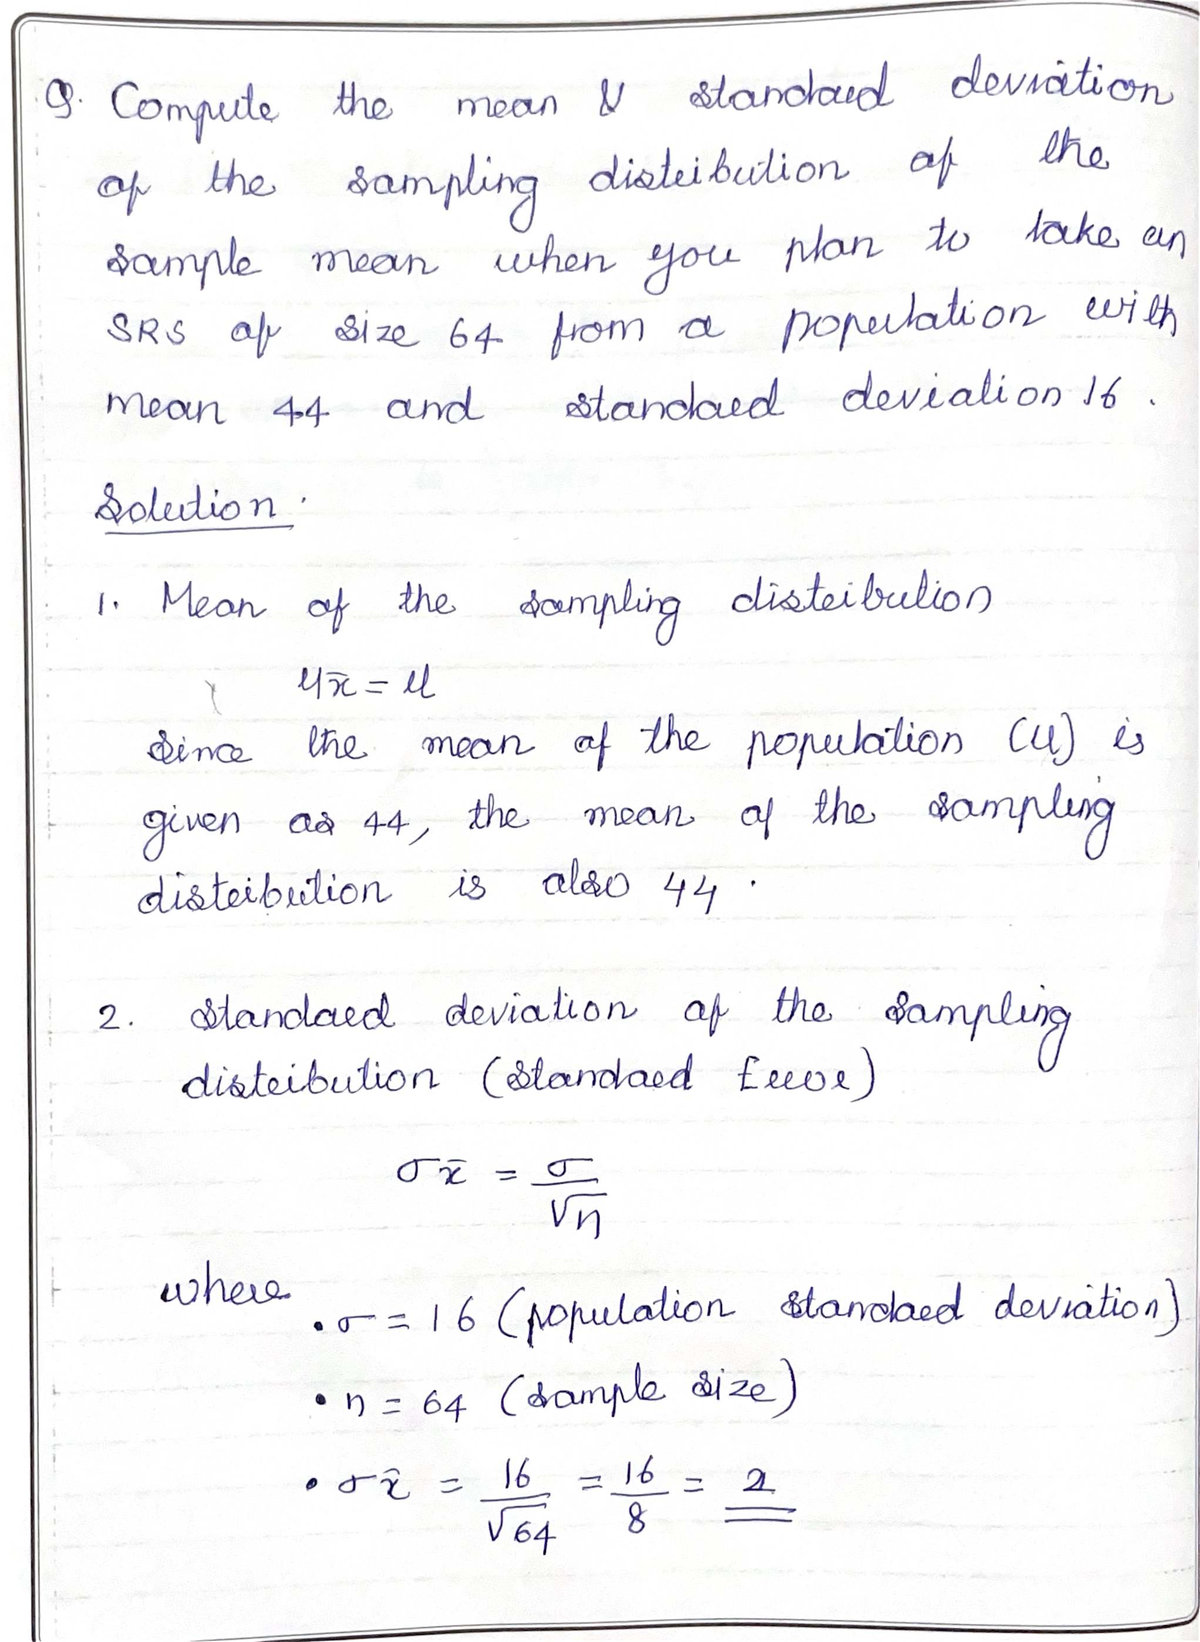 Q. Compute the mean & standard deviation
of the sampling distribution of the
sample mean when you plan to take an
SRS of size 64 from a population with
mean 44 and standard deviation 16.
Solution.
1. Mean of the sampling distribution
μx̄ = μ
Since the mean of the population (μ) is
given as 44, the mean of the sampling
distribution is also 44.
2. Standard deviation of the sampling
distribution (Standard Error)
σx̄ = σ/√n
where
• σ = 16 (population standard deviation)
• n = 64 (sample size)
• σx̄ = 16/√64 = 16/8 = 2